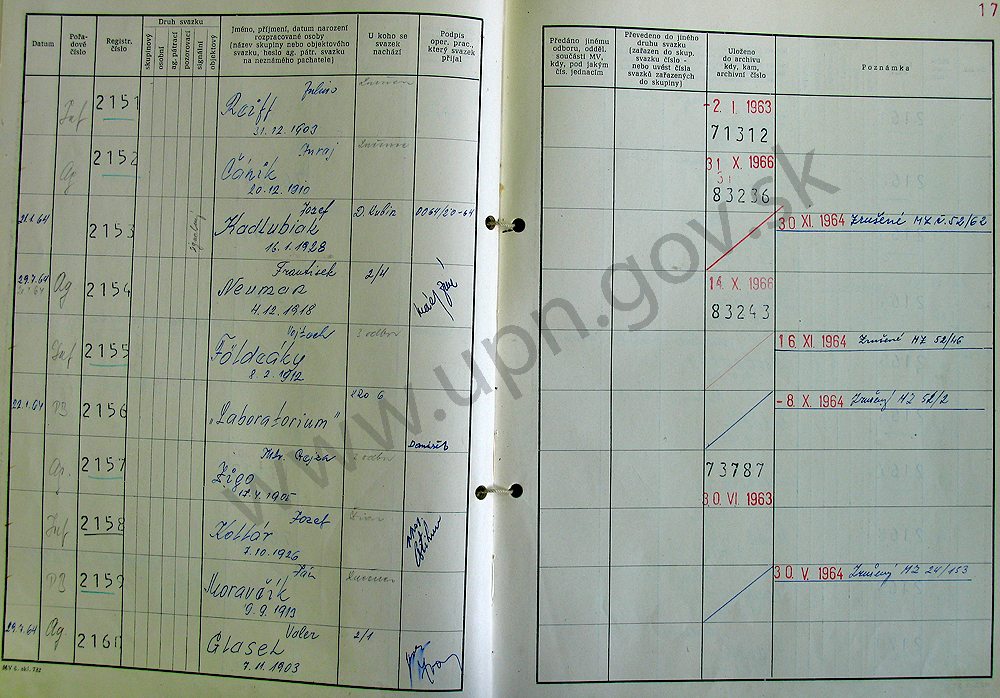 17
Datum
Pořadové číslo
Registr. číslo
Druh svazku
skupinový
osobní
ag. pátrací
pozorovací
signální
objektový
Jméno, příjmení, datum narození
rozpracované osoby
(název skupiny nebo objektového
svazku, heslo ag. pátr. svazku
na neznámého pachatele)
U koho se
svazek
nachází
Podpis
oper. prac.,
který svazek
přijal
Předáno jinému
odboru, odděl.
součásti MV,
kdy, pod jakým
čís. jednacím
Převedeno do jiného
druhu svazku
(zařazen do skup.
svazku číslo -
nebo uvést čísla
svazků zařazených
do skupiny)
Uloženo
do archivu
kdy, kam,
archivní číslo
Poznámka
Inf 2151 Július
Reiff
31.12.1903
- 2. I. 1963
71312
Ag 2152 Juraj
Čáník
20.12.1910
31 X. 1966
83236
21.1.64 2153 Jozef D. Kubín 0064/20-64
Kadlubiak
16.1.1928
30 XI. 1964 Zrušené MZ č. 52/62
29.7.64 Ag 2154 František 2/4
Neuman
4.12.1918
14. X. 1966
83243
Inf 2155 Vojtech 3 odbor
Földeáky
8.2.1912
16. XI. 1964 Zrušené MZ 52/46
22.1.64 PB 2156
„Laboratorium"
- 8. X. 1964 Zrušený MZ 52/2
Ag. 2157 odbor
Žigo
17.4.1905
73787
30. VI. 1963
Inf 2158 Jozef
Kollár
7.10.1926
PB 2159 Ján
Moravčík
9.9.1913
30. V. 1964 Zrušený MZ 24/153
29.7.64 Ag. 2160 Valer 2/1
Glasel
7.11.1903
MV č. skl. 782
www.upn.gov.sk